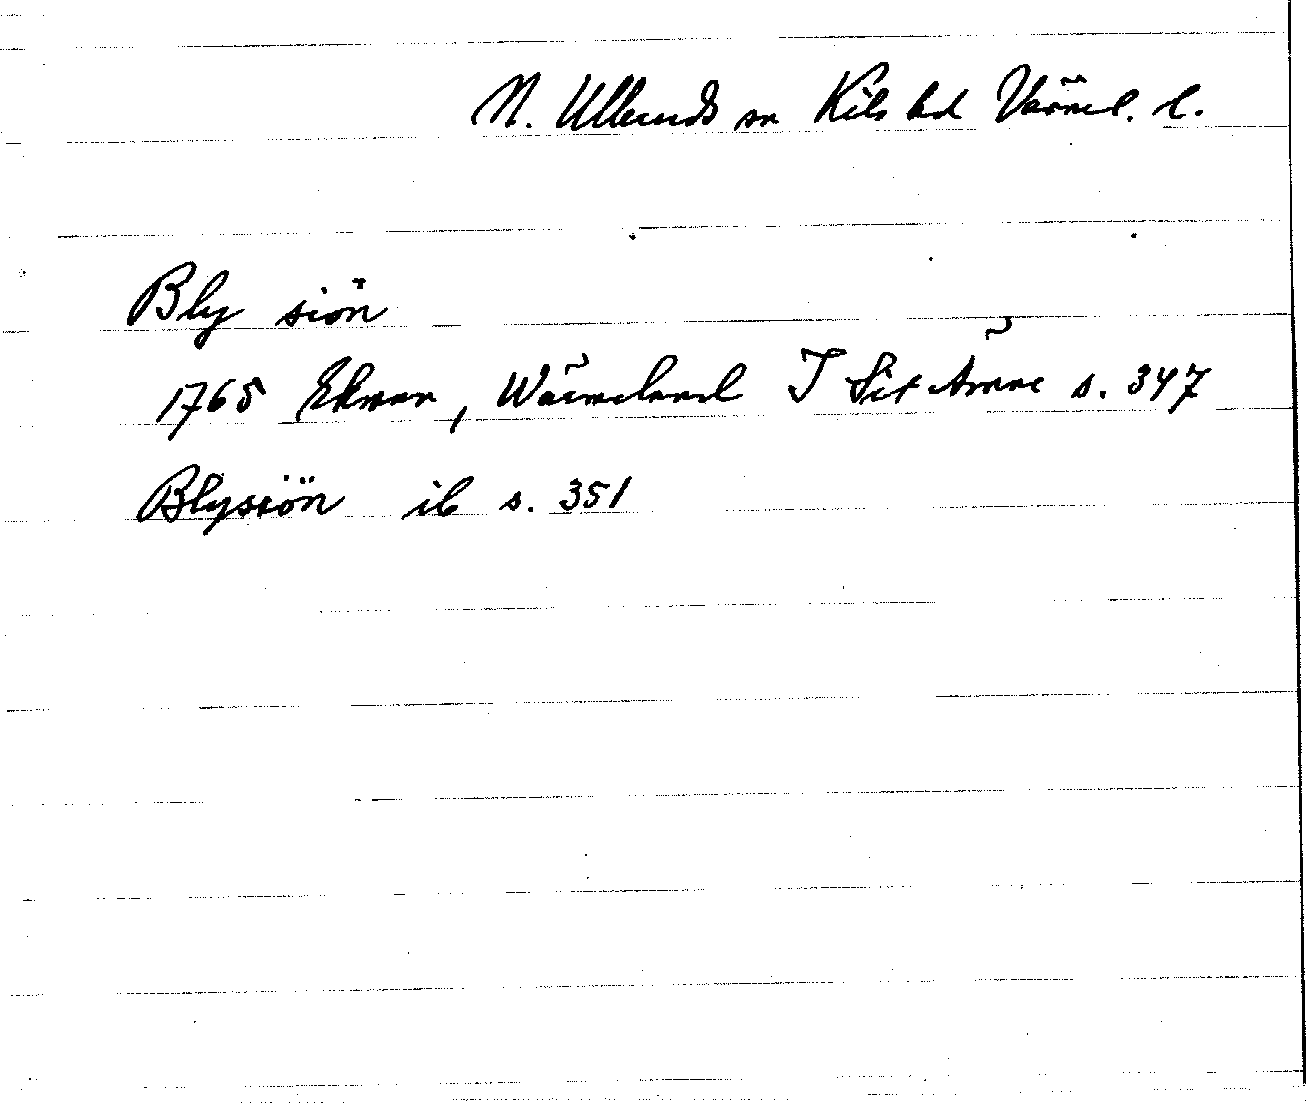 N. Ulleruds sn Kils hd Värml. l.
Bly siön
1765 Ekman, Wärmeland I Sit Ämne s. 347
Blysiön ib s. 351